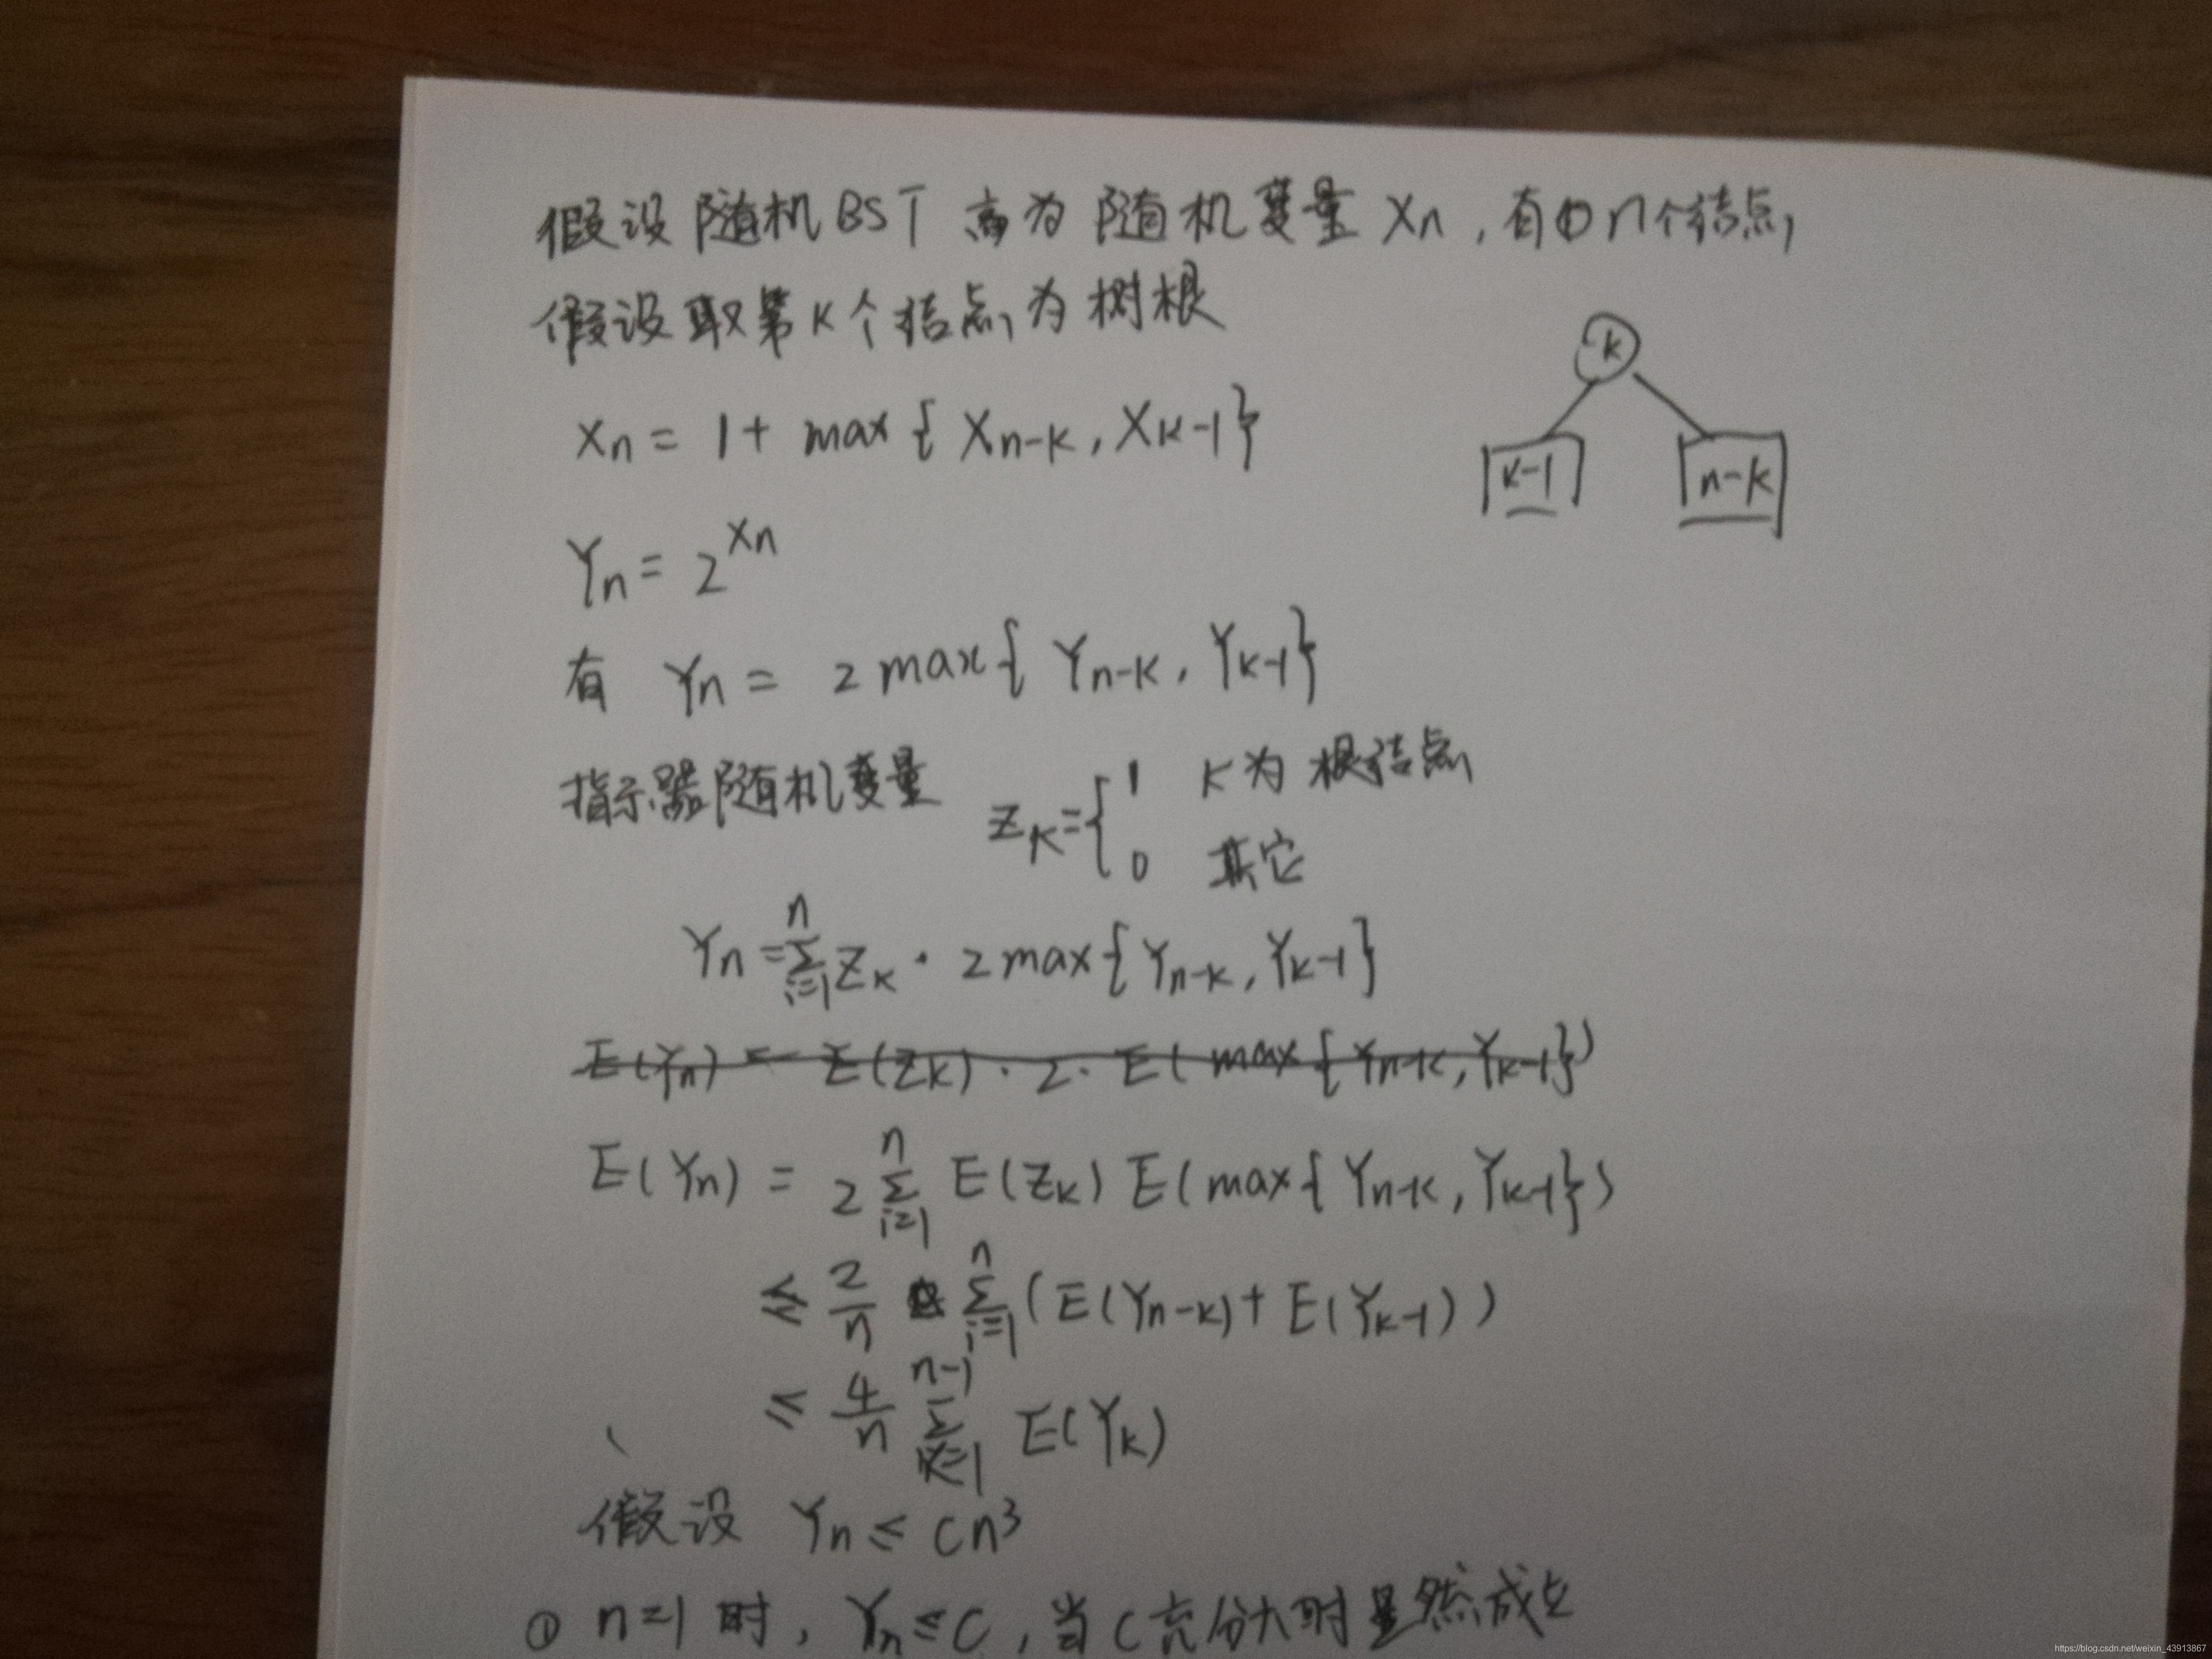 假设随机BST 高为 随机变量 Xn , 有 n个结点,
假设取第K个结点为树根
k
k-1 n-k
Xn = 1+ max { Xn-k , Xk-1}
Yn = 2^Xn
有 Yn = 2 max{ Yn-k , Yk-1}
指示器随机变量 Zk={ 1 K为 根结点
0 其它
Yn = Σ_{i=1}^{n} Zk · 2max{ Yn-k , Yk-1}
E(Yn) = E(Zk) · 2 · E( max { Yn-k , Yk-1})
E(Yn) = 2 Σ_{i=1}^{n} E(Zk) E(max{ Yn-k , Yk-1})
≤ 2/n Σ_{i=1}^{n} (E(Yn-k)+ E(Yk-1))
≤ 4/n Σ_{k=1}^{n-1} E(Yk)
假设 Yn ≤ cn³
① n=1 时, Yn≤C , 当C充分大时显然成立
https://blog.csdn.net/weixin_43913867